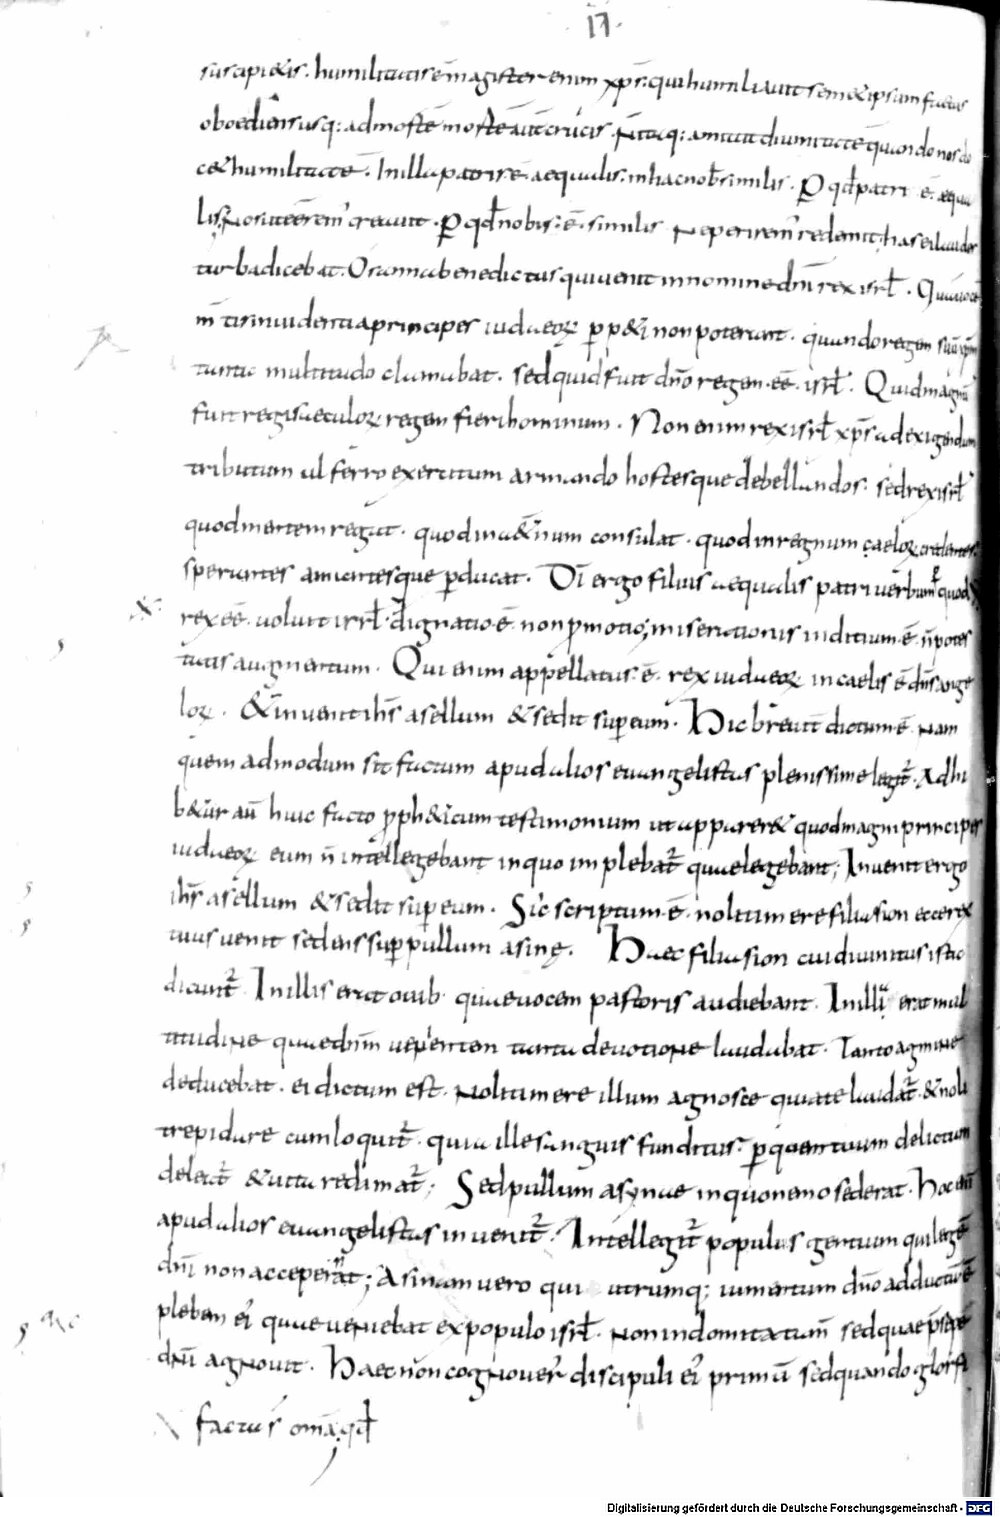 17
suscipietis. humilitatis ē magister enim xp̄s. qui humiliavit semetipsum factus
oboediens usq; ad mortē mortē aūt crucis. Nitaq; amittit divinitatē quando nos do
cet humilitatē. In illa patri ē aequalis. in hac nob similis. P qd patri ē aequa
lis. Nos ut eēmꝰ creavit. P qd nobis ē similis Ne perirem' redemit; has ei laudes
turba dicebat. Osanna benedictus qui venit in nomine dn̄i rex isrl̄. Quā voce
m̄tis invidentia principes iudaeoꝝ ppeti non poterant. quando regem suū xpm̄
tanta multitudo clamabat. sed quid fuit dn̄o regem eē isrl̄. Quid magnū
fuit regi saeculoꝝ regem fieri hominum. Non enim rex isrl̄ xp̄s ad exigendum
tributum ul ferro exercitum armando hostesque debellandos. sed rex isrl̄
quod mentem regat. quod in aet̄num consulat. quod in regnum caeloꝝ credentes
sperantes amantesque p̄ducat. Dī ergo filius aequalis patri verbum p̄ quod
rex eē voluit isrl̄. dignatio ē non p̄motio; miserationis inditium ē n̄ potes
tatis augmentum. Qui enim appellatus ē rex iudaeoꝝ in caelis ē dn̄s ange
loꝝ. & invenit ih̄s asellum & sedit sup eum. Hic brevit̄ dictum ē. Nam
quem admodum sit factum apud alios evangelistas plenissime legit̄. Adhi
betur aū huic facto p̄pheticum testimonium ut appareret quod magni principes
iudaeoꝝ eum n̄ intellegebant in quo implebat̄ quae legebant; Invenit ergo
ih̄s asellum & sedit sup eum. Sic scriptum ē. noli timere filia sion ecce rex
tuus venit sedens sup pullum asinę. Haec filia sion cui divinitus ista
dicunt̄. In illis erat ovib. quae vocem pastoris audiebant. In illa erat mul
titudine quae dn̄m venientem tanta devotione laudabat. Tanto agmine
deducebat. ei dictum est. Noli timere illum agnosce qui a te laudat̄. & noli
trepidare cum loquit̄. quia ille sanguis funditur. p quem tuum delictum
deleat̄ & vita redimat̄; Sed pullum asynae in quo nemo sederat. Hoc enī
apud alios evangelistas invenit̄. Intellegit̄ populus gentium qui legē
dn̄i non acceperāt; Asinam vero qui utrumq; iumentum dn̄o adductū ē
plebem ei' quae veniebat ex populo isrl̄. non indomitatum̄ sed quae p̄sepe
dn̄i agnovit. Haec non cognover' discipuli ei' primū sed quando glorifi
factus omnia qd